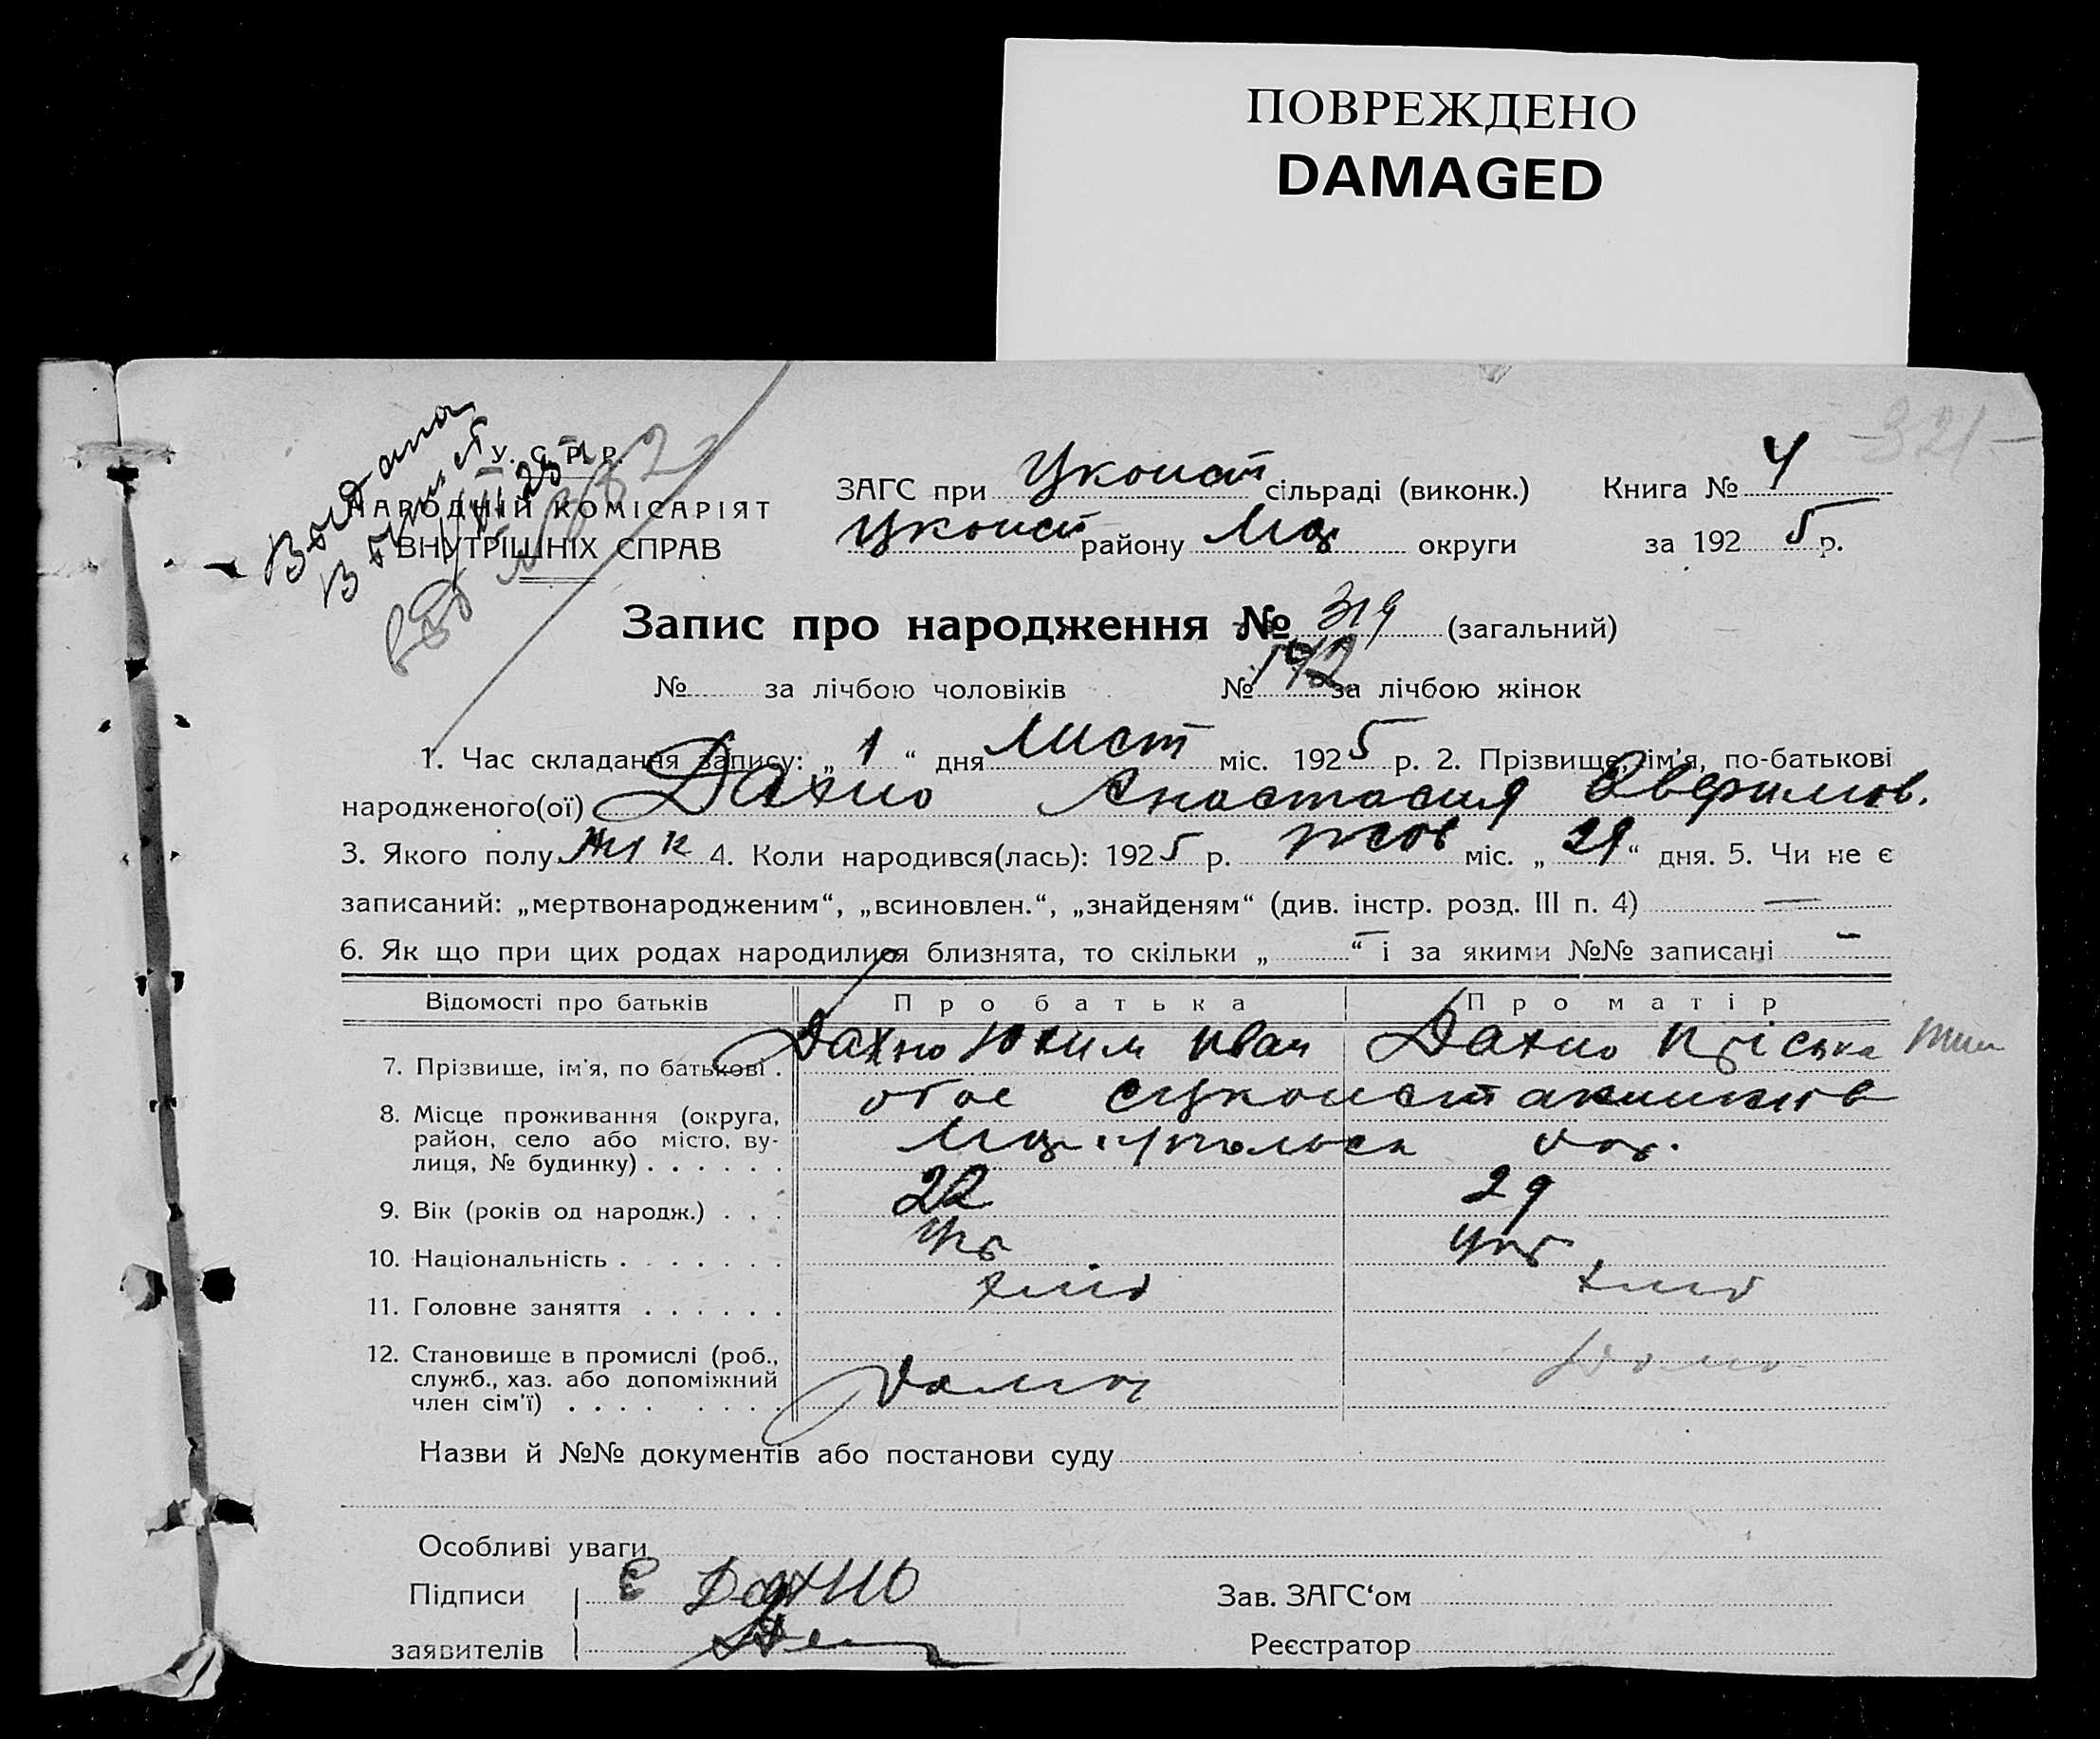 ПОВРЕЖДЕНО
DAMAGED
У. С. Р. Р.
НАРОДНІЙ КОМІСАРІЯТ
ВНУТРІШНІХ СПРАВ
ЗАГС при сільраді (виконк.) Книга № 4
району округи за 1925 р.
321
Запис про народження № 319 (загальний)
№ за лічбою чоловіків № 142 за лічбою жінок
1. Час складання запису: „ 1 “ дня лист міс. 1925 р. 2. Прізвище, ім'я, по-батькові
народженого(ої) Дахно Анастасия
3. Якого полу 4. Коли народився(лась): 1925 р. жов міс. „ 29 “ дня. 5. Чи не є
записаний: „мертвонародженим“, „всиновлен.“, „знайденям“ (див. інстр. розд. III п. 4) —
6. Як що при цих родах народилися близнята, то скільки „ — “ і за якими №№ записані —
Відомості про батьків Про батька Про матір
7. Прізвище, ім'я, по батькові . Дахно Юхим Иван Дахно Пріська
8. Місце проживання (округа, обое
район, село або місто, ву-
лиця, № будинку) . . . . . .
9. Вік (років од народж.) . . . 22 29
10. Національність . . . . . . . Укр Укр
11. Головне заняття . . . . . . хліб хліб
12. Становище в промислі (роб.,
служб., хаз. або допоміжний
член сім'ї) . . . . . . . .
Назви й №№ документів або постанови суду
Особливі уваги
Підписи Є Дахно Зав. ЗАГС‘ом
заявителів Реєстратор